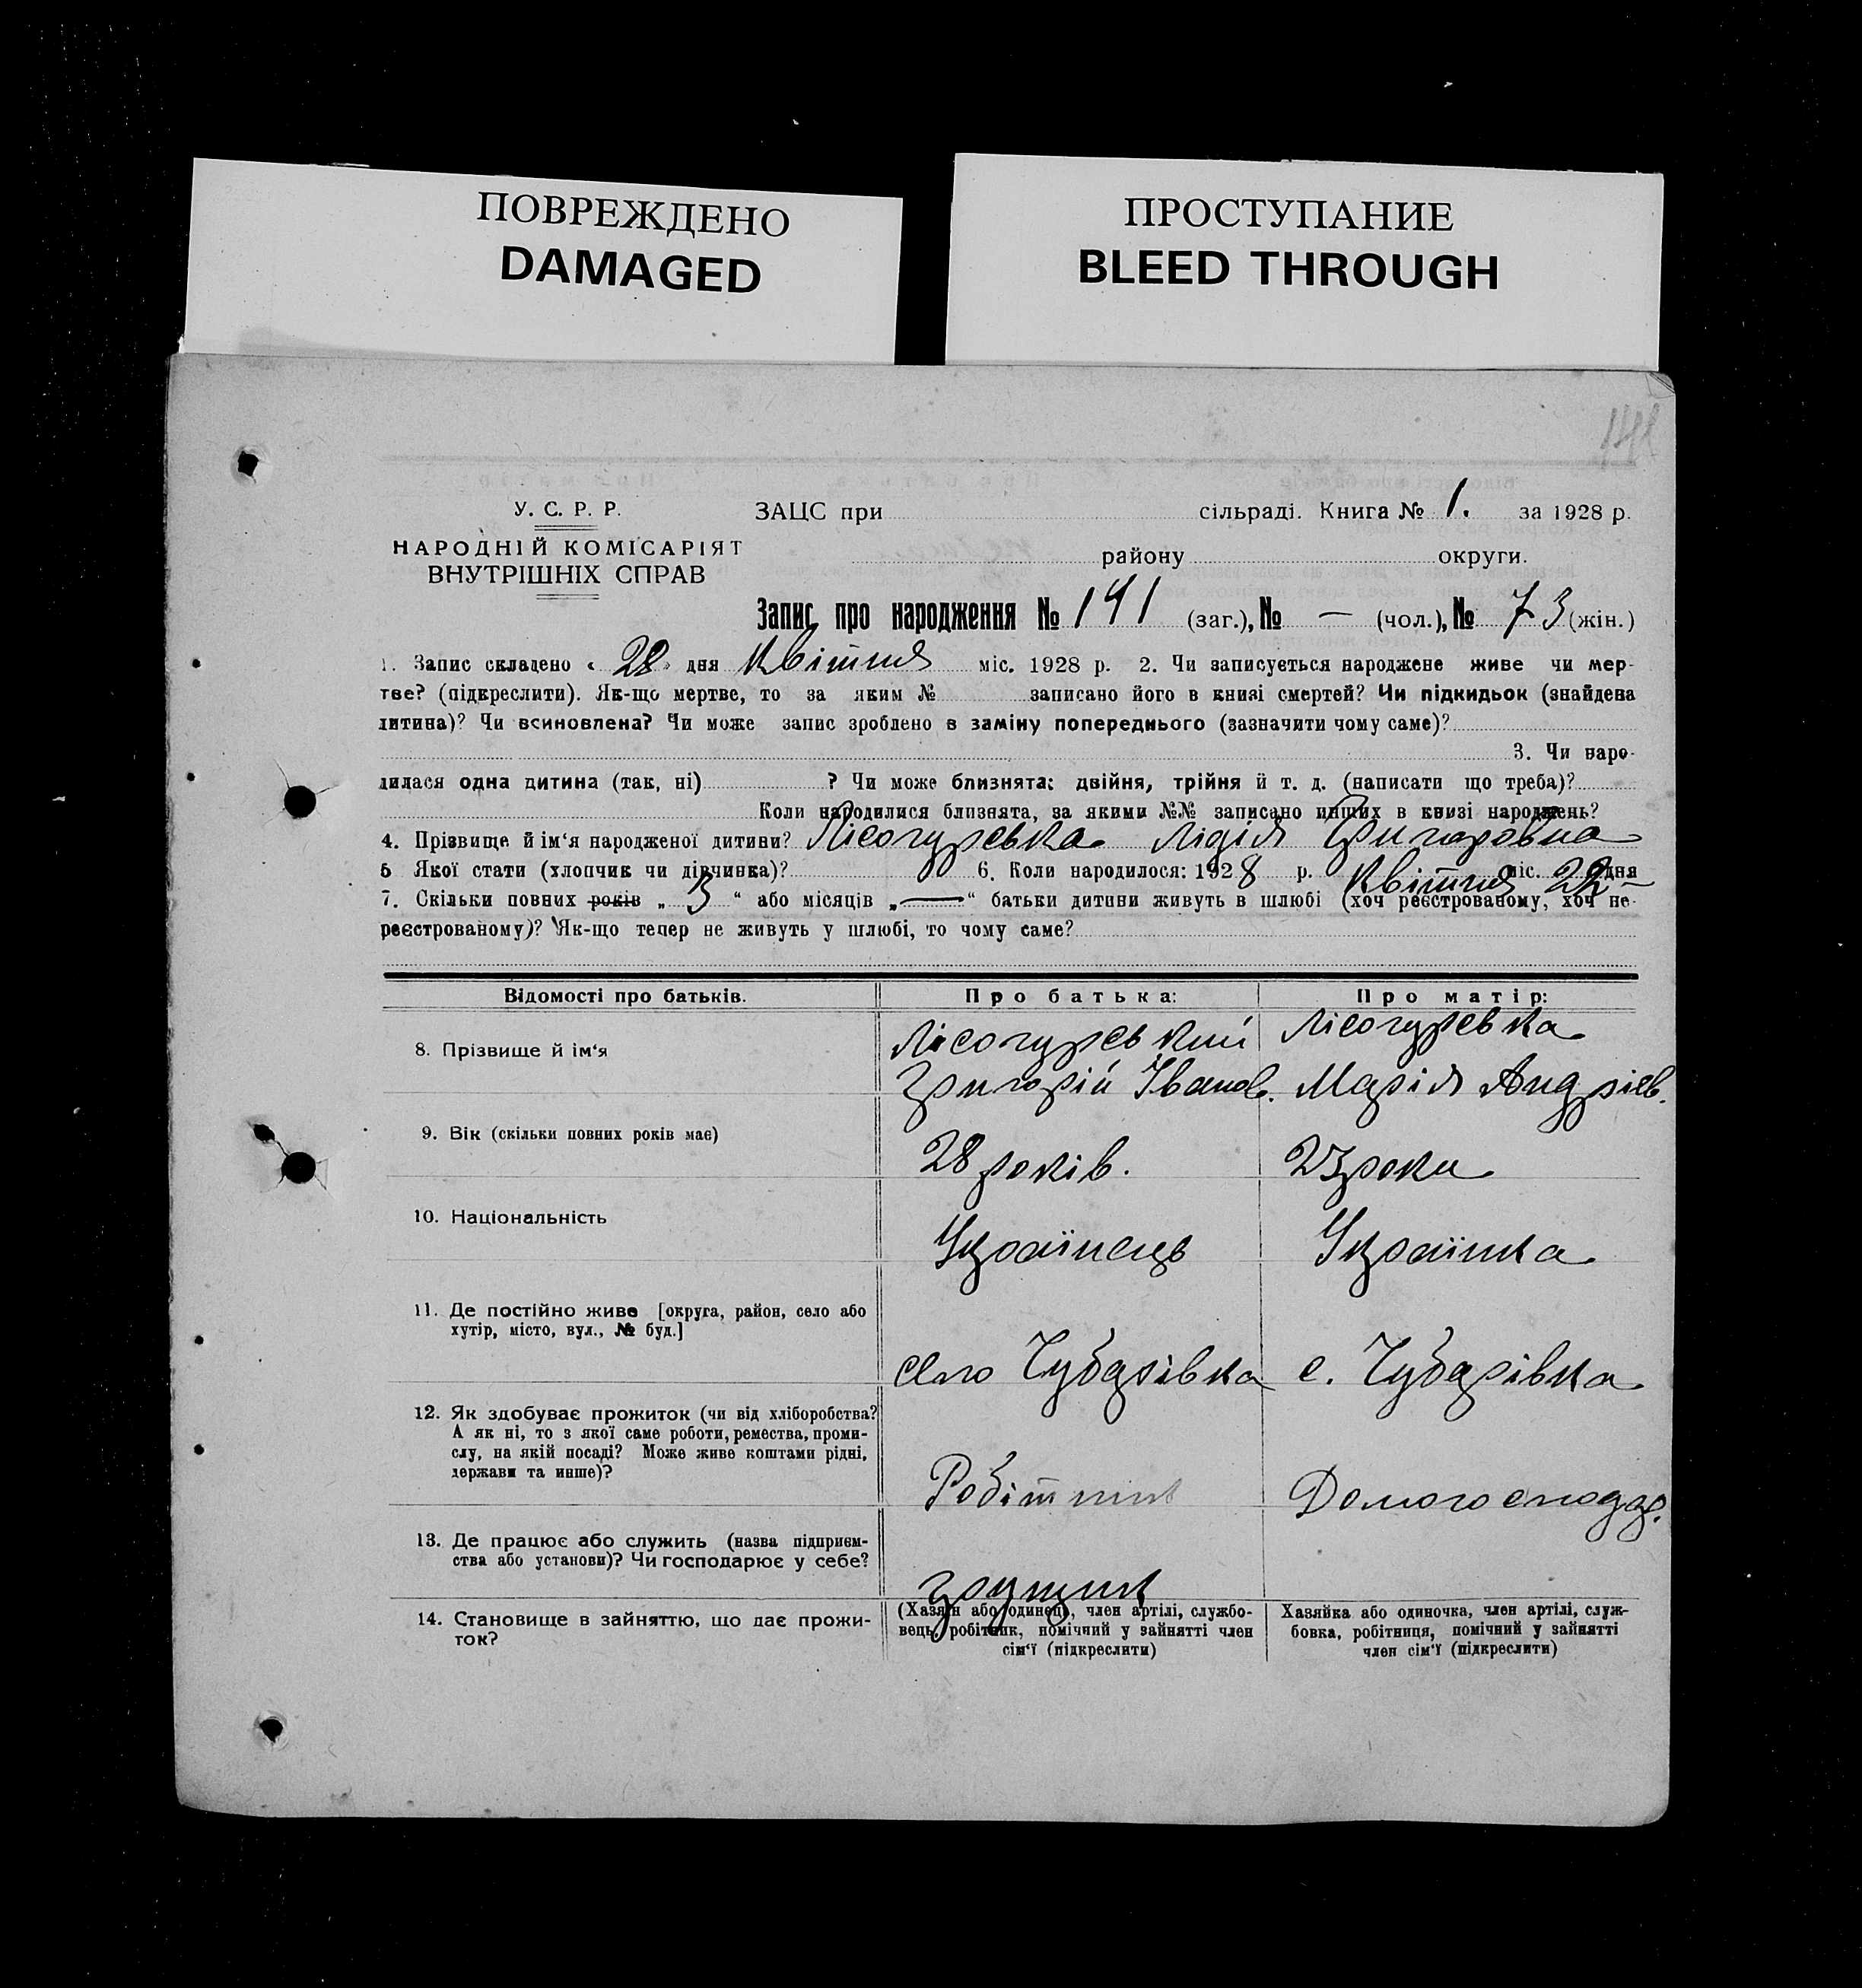 ПОВРЕЖДЕНО
DAMAGED
ПРОСТУПАНИЕ
BLEED THROUGH
У. С. Р. Р.
НАРОДНІЙ КОМІСАРІЯТ
ВНУТРІШНІХ СПРАВ
ЗАЦС при сільраді. Книга № 1. за 1928 р.
району округи.
Запис про народження № 141 (заг.), № — (чол.), № 73 (жін.)
1. Запис складено « 28 » дня Квітня міс. 1928 р. 2. Чи записується народжене живе чи мер-
тве? (підкреслити). Як-що мертве, то за яким № записано його в книзі смертей? Чи підкидьок (знайдена
дитина)? Чи всиновлена? Чи може запис зроблено в заміну попереднього (зазначити чому саме)?
3. Чи наро-
дилася одна дитина (так, ні) ? Чи може близнята: двійня, трійня й т. д. (написати що треба)?
Коли народилися близнята, за якими №№ записано инших в книзі народжень?
4. Прізвище й ім‘я народженої дитини? Лісогурська Лідія Григоровна
5 Якої стати (хлопчик чи дівчинка)? 6. Коли народилося: 1928 р. Квітня міс. 22 дня
7. Скільки повних років „ 3 “ або місяців „ — “ батьки дитини живуть в шлюбі (хоч реєстрованому, хоч не-
реєстрованому)? Як-що тепер не живуть у шлюбі, то чому саме?
Відомості про батьків. Про батька: Про матір:
8. Прізвище й ім‘я Лісогурський Григорій Іванов. Лісогурська Марія Андріев.
9. Вік (скільки повних років має) 28 років. 23 роки
10. Національність Українець Українка
11. Де постійно живе [округа, район, село або
хутір, місто, вул., № буд.] село Чубарівка с. Чубарівка
12. Як здобуває прожиток (чи від хліборобства?
А як ні, то з якої саме роботи, ремества, проми-
слу, на якій посаді? Може живе коштами рідні,
держави та инше)? Робітник Домогосподар.
13. Де працює або служить (назва підприєм-
ства або установи)? Чи господарює у себе?
14. Становище в зайняттю, що дає прожи-
ток?
(Хазяїн або одинець, член артілі, службо-
вець, робітник, помічний у зайнятті член
сім‘ї (підкреслити)
Хазяйка або одиночка, член артілі, служ-
бовка, робітниця, помічний у зайнятті
член сім‘ї (підкреслити)